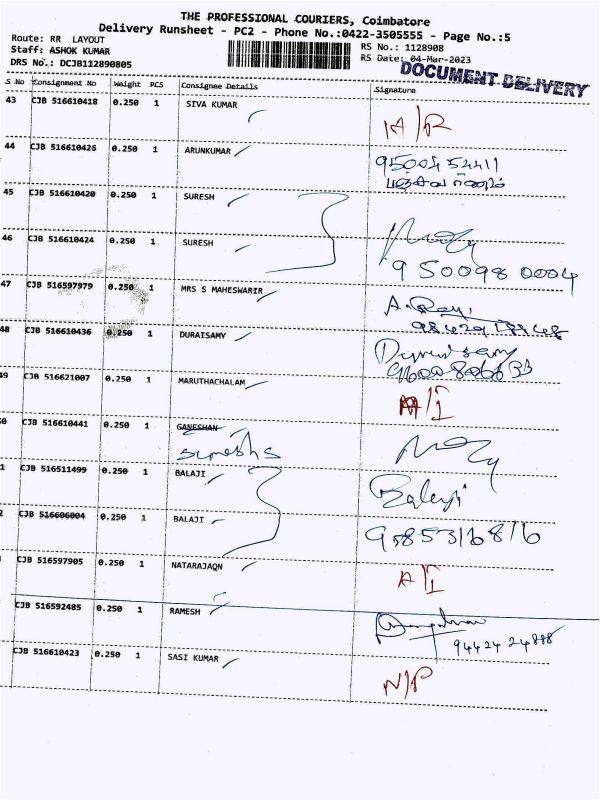 THE PROFESSIONAL COURIERS, Coimbatore
Delivery Runsheet - PC2 - Phone No.:0422-3505555 - Page No.:5
Route: RR LAYOUT
RS No.: 1128908
Staff: ASHOK KUMAR
RS Date: 04-Mar-2023
DRS No.: DCJB112890805
DOCUMENT DELIVERY
S No Consignment No Weight PCS Consignee Details Signature
43 CJB 516610418 0.250 1 SIVA KUMAR
44 CJB 516610426 0.250 1 ARUNKUMAR
45 CJB 516610420 0.250 1 SURESH
46 CJB 516610424 0.250 1 SURESH
95009 80004
47 CJB 516597979 0.250 1 MRS S MAHESWARIR
48 CJB 516610436 0.250 1 DURAISAMY
Duraisamy
49 CJB 516621007 0.250 1 MARUTHACHALAM
A/I
0 CJB 516610441 0.250 1 GANESHAN
1 CJB 516511499 0.250 1 BALAJI
Balaji
2 CJB 516606004 0.250 1 BALAJI
CJB 516597905 0.250 1 NATARAJAQN
A/I
CJB 516592485 0.250 1 RAMESH
94424 24888
CJB 516610423 0.250 1 SASI KUMAR
N/P